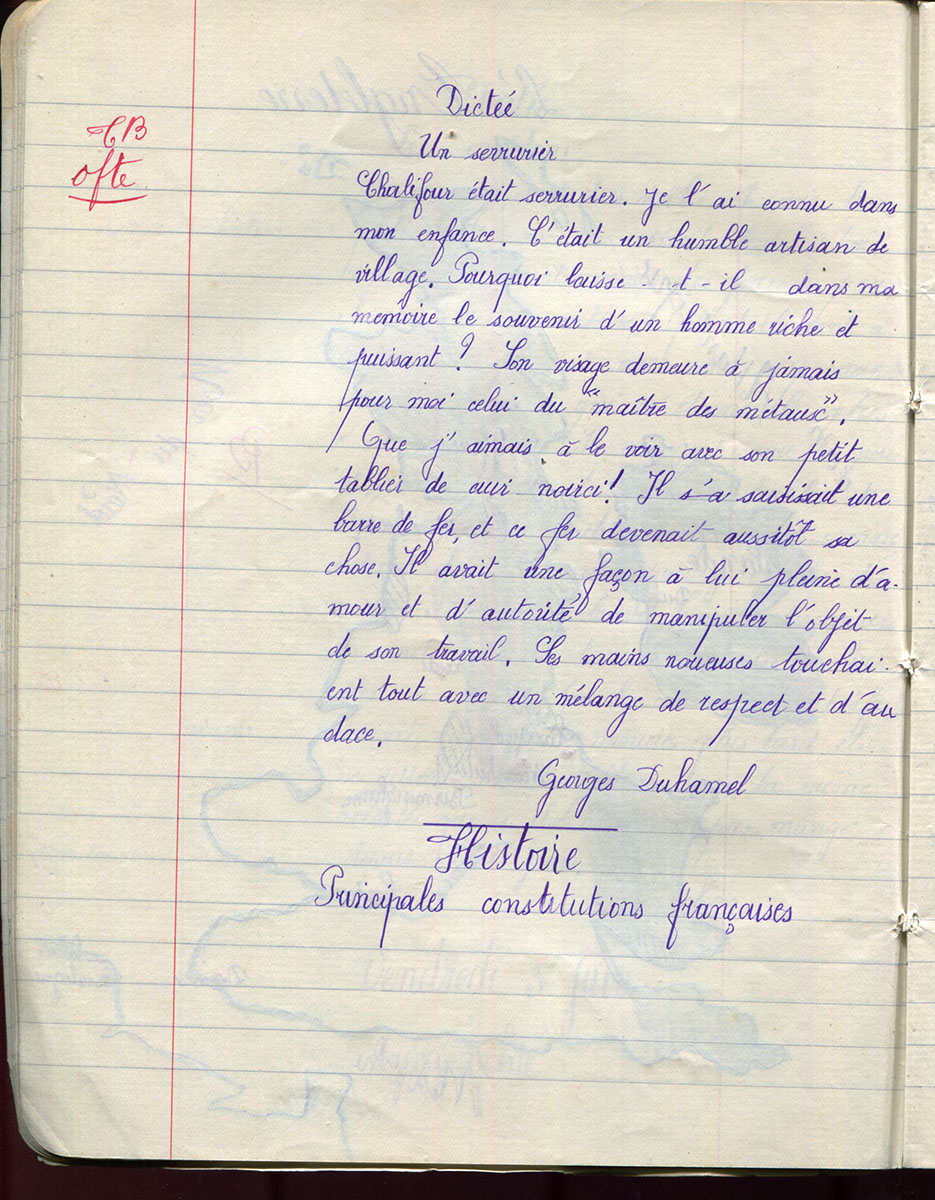 Dicteé
CB
Un serrurier
ofte
Chalifour était serrurier. Je l'ai connu dans
mon enfance. C'était un humble artisan de
village. Pourquoi laisse-t-il dans ma
memoire le souvenir d'un homme riche et
puissant ? Son visage demeure à jamais
pour moi celui du "maître des métaux".
Que j'aimais à le voir avec son petit
tablier de cuir noirci! Il s'a saisissait une
barre de fer, et ce fer devenait aussitôt sa
chose. Il avait une façon à lui pleine d'a-
mour et d'autorité de manipuler l'objet
de son travail. Ses mains noueuses touchai-
ent tout avec un mélange de respect et d'au
dace.
Georges Duhamel
Histoire
Principales constitutions françaises